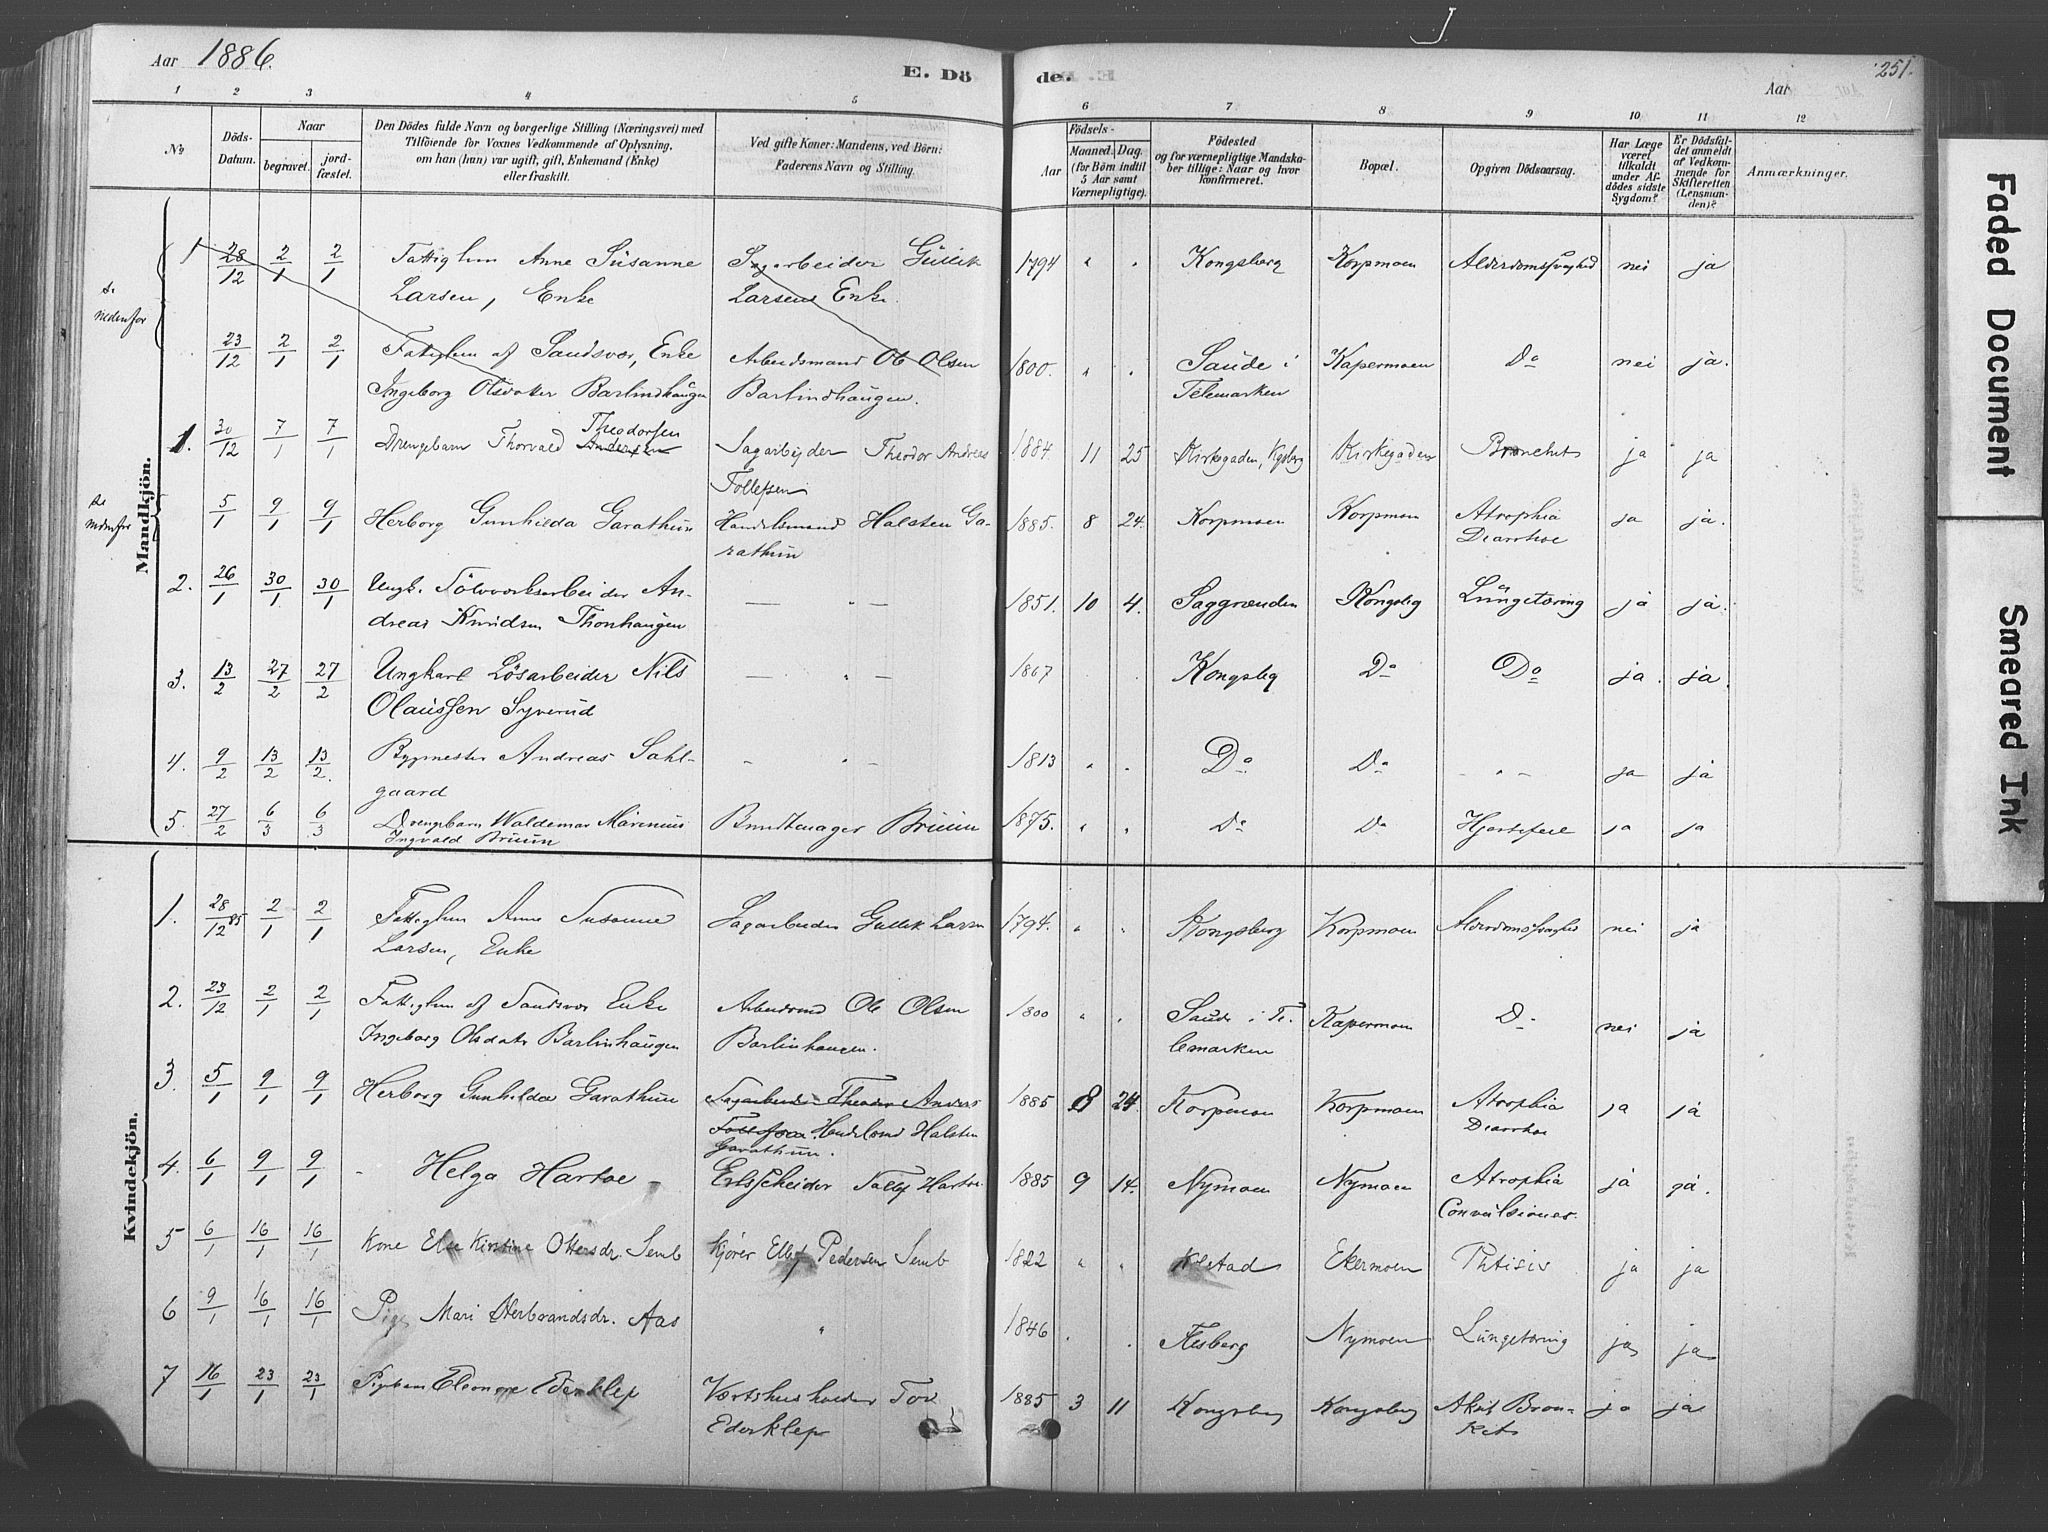 Aar 1886.
E. Dö
de.
Aar
251.
1 2 3 4 5 6 7 8 9 10 11 12
No
Döds-Datum.
Naar
begravet.
jord-fæstet.
Den Dödes fulde Navn og borgerlige Stilling (Næringsvei) med
Tilföiende for Voxnes Vedkommende af Oplysning,
om han (hun) var ugift, gift, Enkemand (Enke)
eller fraskilt.
Ved gifte Koner: Mandens, ved Börn:
Faderens Navn og Stilling.
Födsels-
Aar
Maaned.
Dag.
(for Börn indtil
5 Aar samt
Værnepligtige).
Födested
og for værnepligtige Mandska-
ber tillige: Naar og hvor
konfirmeret.
Bopæl.
Opgiven Dödsaarsag.
Har Læge
været
tilkaldt
under Af-
dödes sidste
Sygdom?
Er Dödsfal-
det anmeldt
af Vedkom-
mende for
Skifteretten
(Lensman-
den)?
Anmærkninger.
Mandkjön.
se nedenfor
1 28/12 2/1 2/1 Fattiglem Anne Susanne Sagarbeider Gullik 1794 " " Kongsberg Korpmoen Alderdomssvaghed nei ja
Larsen, Enke Larsens Enke.
23/12 2/1 2/1 Fattiglem af Sandsvær, Enke Arbeidsmand Ole Olsen 1800. " " Saude i Kapermoen Do nei ja.
Ingeborg Olsdatter Barlindhaugen Barlindhaugen. Telemarken
1. 30/12 7/1 7/1 Drengebarn Thorvald Andersen Theodorsen Sagarbejder Theodor Andreas 1884. 11 25 Kirkegaden, Kgsberg Kirkegaden Bronchit ja ja
Tollefsen
se nedenfor
5/1 9/1 9/1 Herborg Gunhilda Garathun Handelsmand Halsten Ga- 1885. 8 24. Korpmoen Korpmoen Atrophia ja ja.
rathun Diarrhoe
2. 26/1 30/1 30/1 Ungk. Sölvverksarbeider An- — " — 1851. 10 4. Saggrenden Kongsbg Lungetæring ja ja.
dreas Knudsen Thonhaugen
3. 13/2 27/2 27/2 Ungkarl Lösarbeider Nils — " — 1867 Kongsbg Do Do ja. ja.
Olaussen Syverud
4. 9/2 13/2 13/2. Bygmester Andreas Sahl- — " — 1813 " " Do Do — " — ja ja
gaard
5. 27/2 6/3 6/3 Drengebarn Waldemar Marenius Bundtmager Bruun 1875. " " Do Do Hjertefeil ja ja
Ingvald Bruun
Kvindekjön.
1. 28/12 85 2/1 2/1 Fattiglem Anne Susanne Sagarbeider Gullik Larsen 1794. " " Kongsberg Korpmoen Alderdomssvaghed nei ja
Larsen, Enke
2. 23/12 2/1 2/1 Fattiglem af Sandsvær Enke Arbeidsmd Ole Olsen 1800 " " Saude i Te- Kapermoen Do nei ja
Ingeborg Olsdatr Barlinhaugen Barlinhaugen. lemarken
3. 5/1 9/1 9/1 Herborg Gunhilda Garathun Sagarbeider Theodor Andreas 1885 8 24. Korpmoen Korpmoen Atrophia ja ja
Tollefsen. Handelsmd Halsten Diarrhoe
Garathun.
4. 6/1 9/1 9/1 - Helga Hartoe - Tollef Hartoe 1885 9 14. Nymoen Nymoen Atrophia ja ja.
Convulsioner.
5 6/1 16/1 16/1 Kone Else Kirstine Ottersdr. Semb Kjörer Ellef Pedersen Semb 1822 " " Ekermoen Phtisis ja ja
6 9/1 16/1 16/1 Pige Mari Herbrandsdr. Aas " 1846 . . Flesberg Nymoen Lungetæring ja ja
7 16/1 23/1 23/1 Pigebarn Eleonore Ederklep Værtshusholder Tov 1885 3 11 Kongsberg Kongsberg Akut Bron- ja ja
Ederklep kit
Faded Document
Smeared Ink